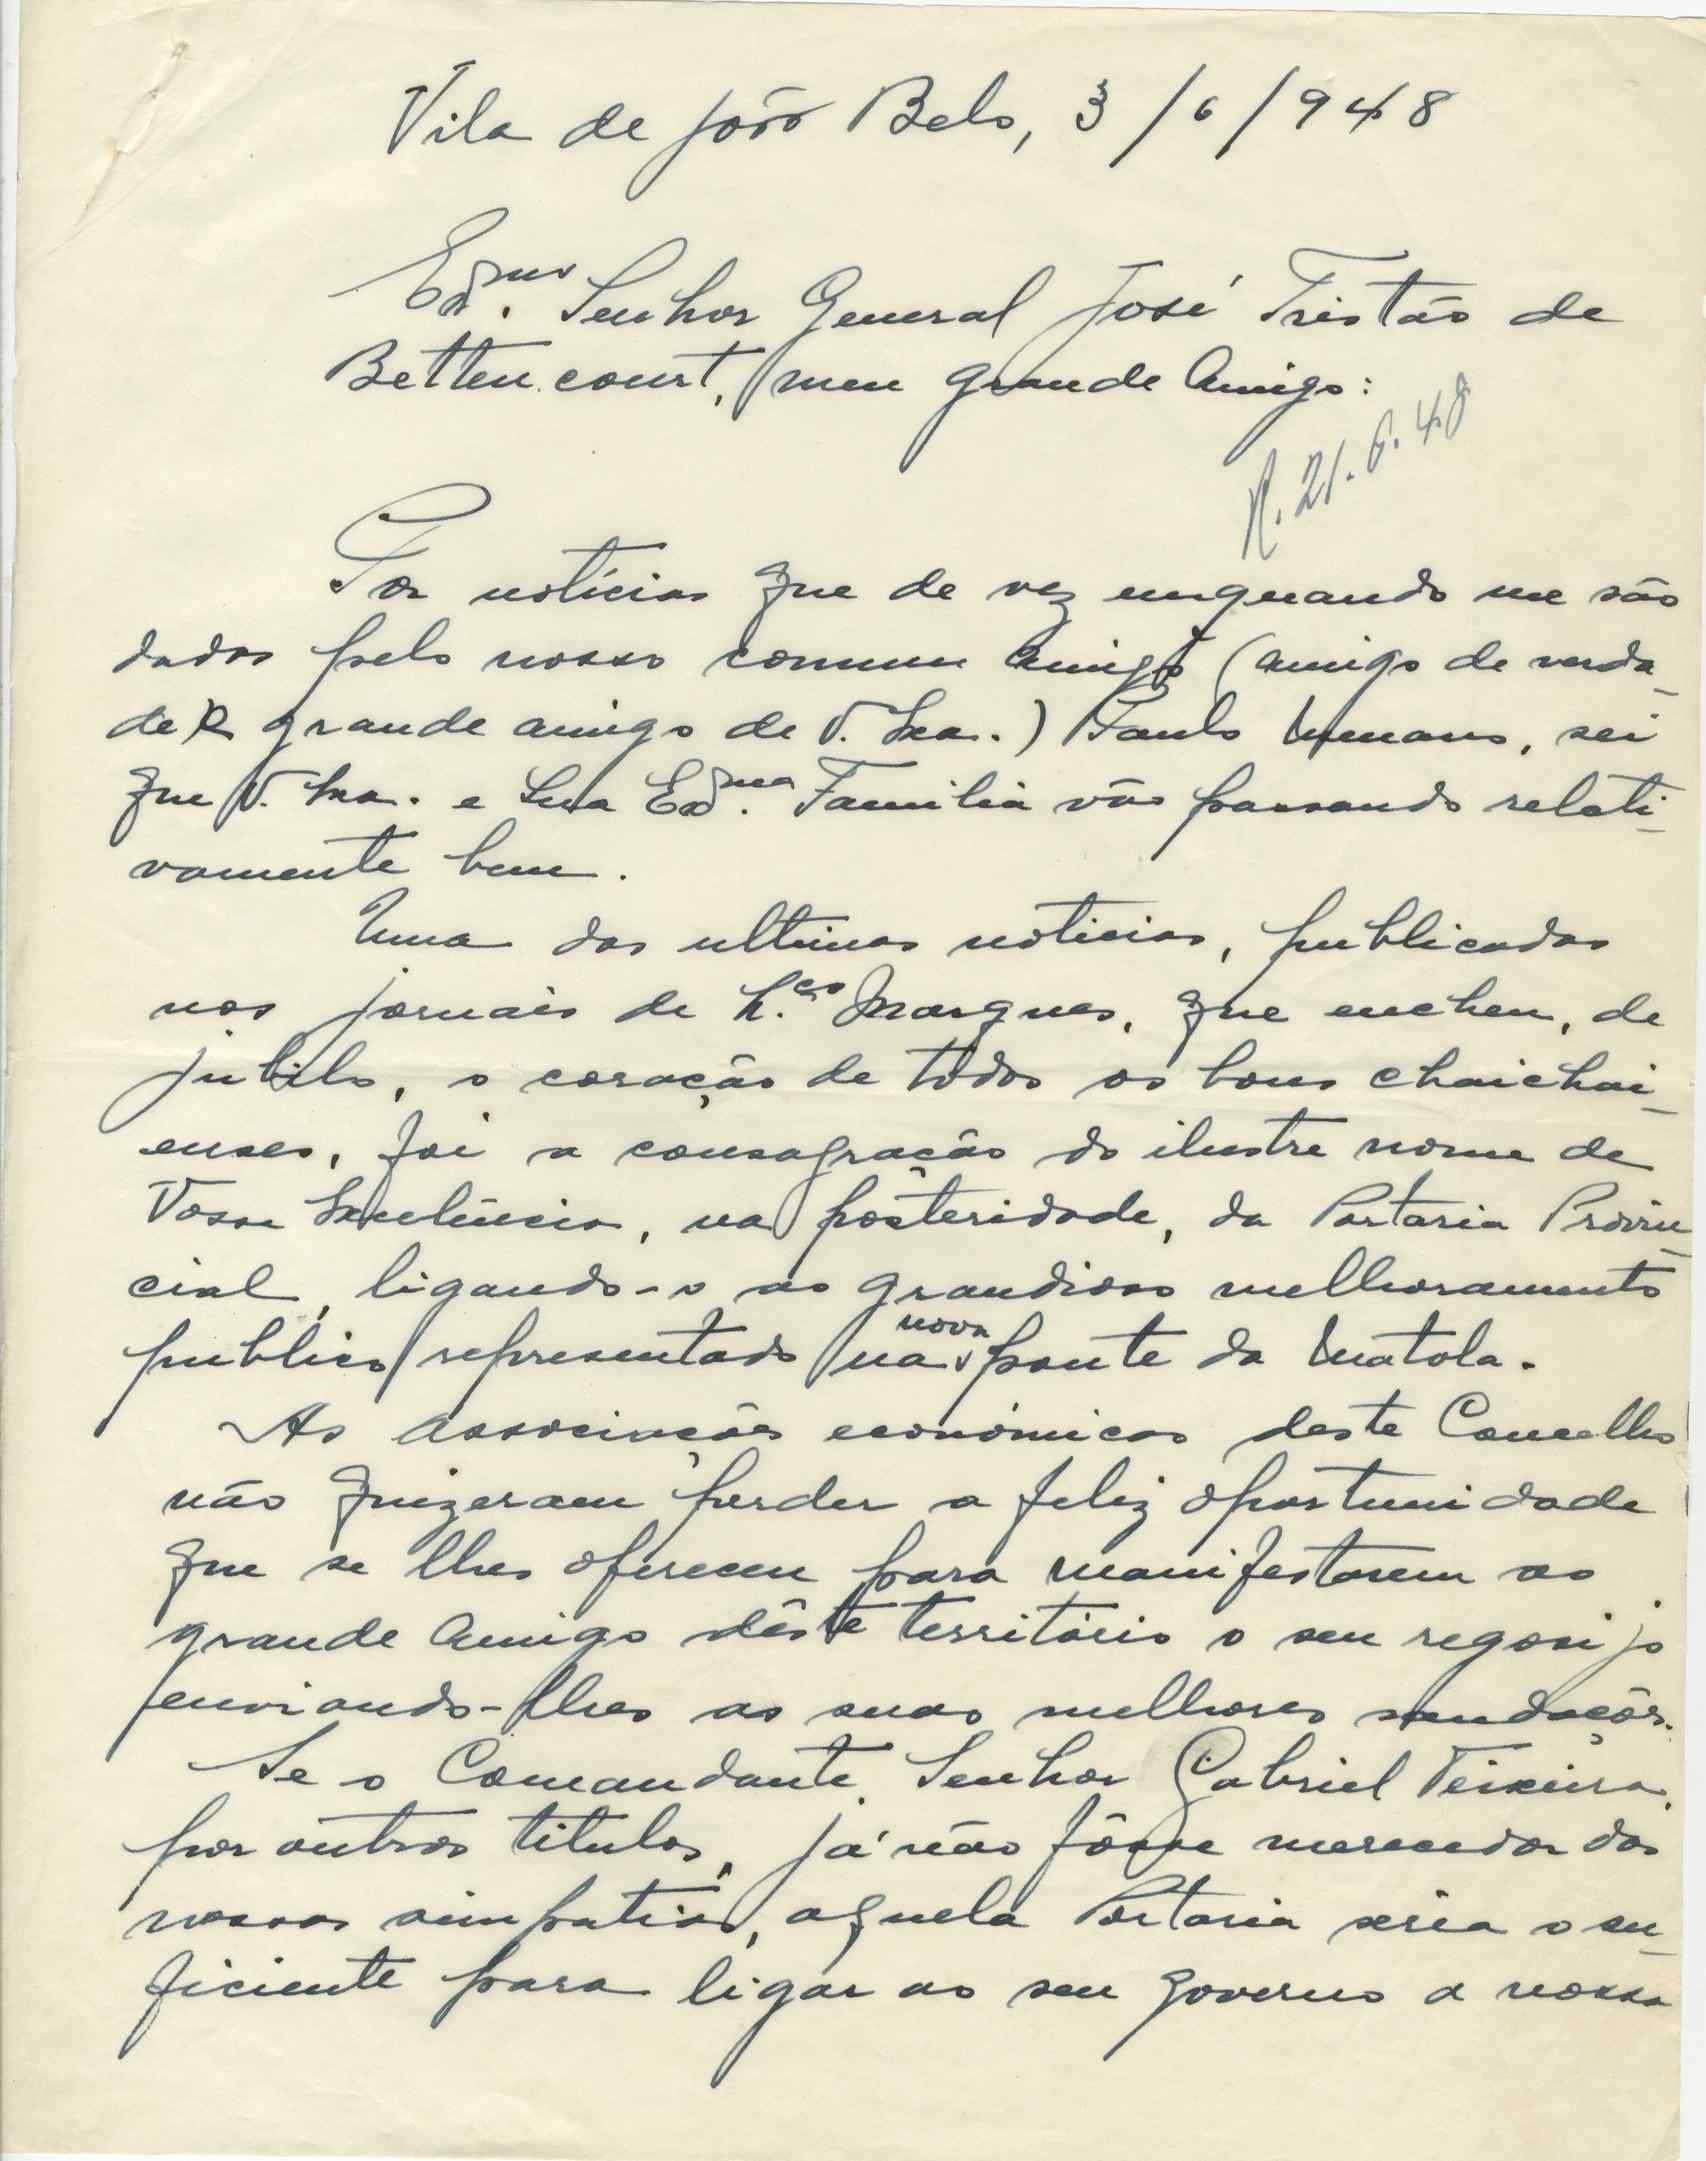 Vila de João Belo, 3/6/948
Exmo. Senhor General José Tristão de
Bettencourt, meu grande Amigo:
R. 21.6.48
Por notícias que de vez enquando me são
dadas pelo nosso comum Amigo (amigo de verda-
de e grande amigo de V. Exa.) Paulo, sei
que V. Exa. e Sua Exma. Familia vão passando relati-
vamente bem.
Uma das ultimas noticias, publicadas
nos jornais de L.ço Marques, que enchem, de
jubilo, o coração de todos os bons chaichai-
enses, foi a consagração do ilustre nome de
Vossa Excelência, na posteridade, da Portaria Provin-
cial, ligando-o ao grandioso melhoramento
publico representado na nova ponte da Matola.
As associações económicas deste Concelho
não quizeram perder a feliz oportunidade
que se lhes ofereceu para manifestarem ao
grande Amigo dêste território o seu regosijo
enviando-lhes as suas melhores saudações.
Se o Comandante Senhor Gabriel Teixeira,
por outros titulos, já não fôsse merecedor das
nossas simpatias, aquela Portaria seria o su-
ficiente para ligar ao seu governo a nossa